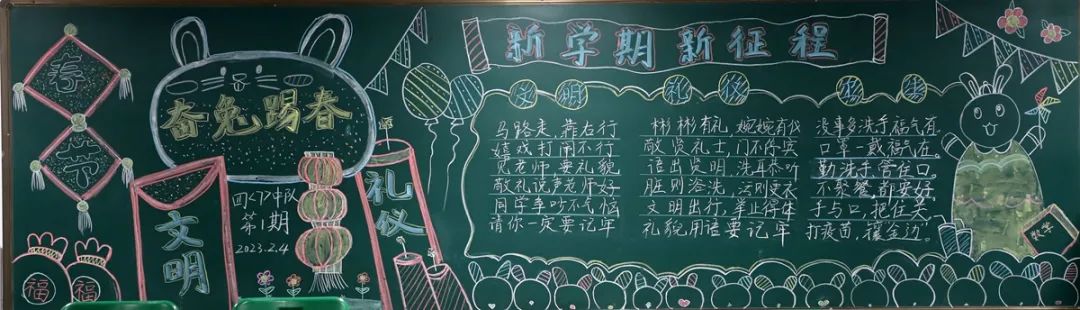 春
节
奋兔踢春
文明
四<7>中队
第1期
2023.2.4
礼仪
福
福
新学期新征程
文明
礼仪
马路走,靠右行
嬉戏打闹不行
见老师要礼貌
敬礼说声老师好
同学事吵不气恼
请你一定要记牢
彬彬有礼 婉婉有仪
敬贤礼士,门不停宾
语出贤明,洗耳恭听
脏则浴洗,污则更衣
文明出行,举止得体
礼貌用语要记牢
没事多洗手福气有
口罩一戴福气在。
勤洗手,管住口,
不聚餐,都要好
手与口,把住关
打疫苗,镶金边。
数学